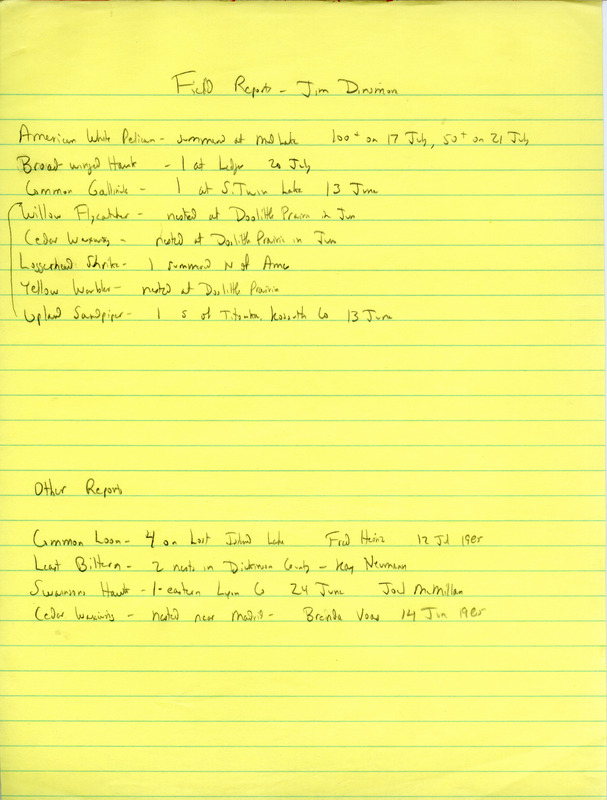 Field Reports - Jim Dinsmore
American White Pelican - summered at Mud Lake 100+ on 17 July, 50+ on 21 July
Broad winged Hawk - 1 at Ledges 20 July
Common Gallinule - 1 at S. Twin Lake 13 June
Willow Flycatcher - nested at Doolittle Prairie in Jun
Cedar Waxwing - nested at Doolittle Prairie in Jun
Loggerhead Shrike - 1 summered N of Ames
Yellow Warbler - nested at Doolittle Prairie
Upland Sandpiper - 1 S of Titonka, Kossuth Co 13 June
Other Reports
Common Loon - 4 on Lost Island Lake Fred Heinz 12 Jul 1985
Least Bittern - 2 nests in Dickinson County - Kay Neumann
Swainsons Hawk - 1 - eastern Lyon Co 24 June Joel McMillan
Cedar Waxwing - nested near Madrid - Brenda Voas 14 Jun 1985